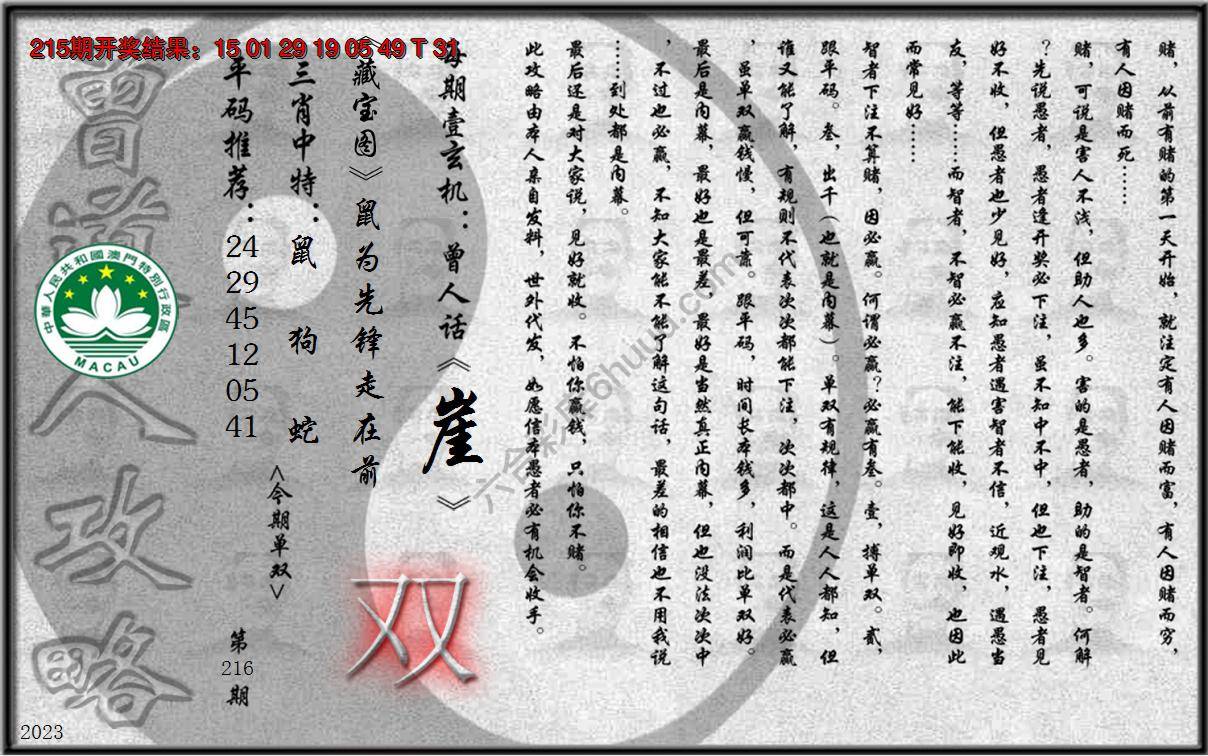 215期开奖结果：15 01 29 19 05 49 T 31
赌，从前有赌的第一天开始，就注定有人因赌而富，有人因赌而穷，
有人因赌而死……
赌，可说是害人不浅，但助人也多。害的是愚者，助的是智者。何解
？先说愚者，愚者逢开奖必下注，虽不知中不中，但也下注，愚者见
好不收，但愚者也少见好，应知愚者遇害智者不信，近观水，遇愚当
友，等等……而智者，不智必赢不注，能下能收，见好即收，也因此
而常见好……
智者下注不算赌，因必赢。何谓必赢？必赢有叁。壹，搏单双。贰，
跟平码。叁，出千（也就是内幕）。单双有规律，这是人人都知，但
谁又能了解，有规则不代表次次都能下注，次次都中。而是代表必赢
，虽单双赢钱慢，但可靠。跟平码，时间长本钱多，利润比单双好。
最后是内幕，最好也是最差，最好是当然真正内幕，但也没法次次中
，不过也必赢，不知大家能不能了解这句话，最差的相信也不用我说
……到处都是内幕。
最后还是对大家说，见好就收。不怕你赢钱，只怕你不赌。
此攻略由本人亲自发料，世外代发，如愿信本愚者必有机会收手。
每期壹玄机：曾人话《崖》
《藏宝图》鼠为先锋走在前
三肖中特：鼠 狗 蛇
平码推荐：24 29 45 12 05 41
<今期单双>
双
第216期
曾道人攻略
中華人民共和國澳門特別行政區
MACAU
六合彩库6huuu.com
2023